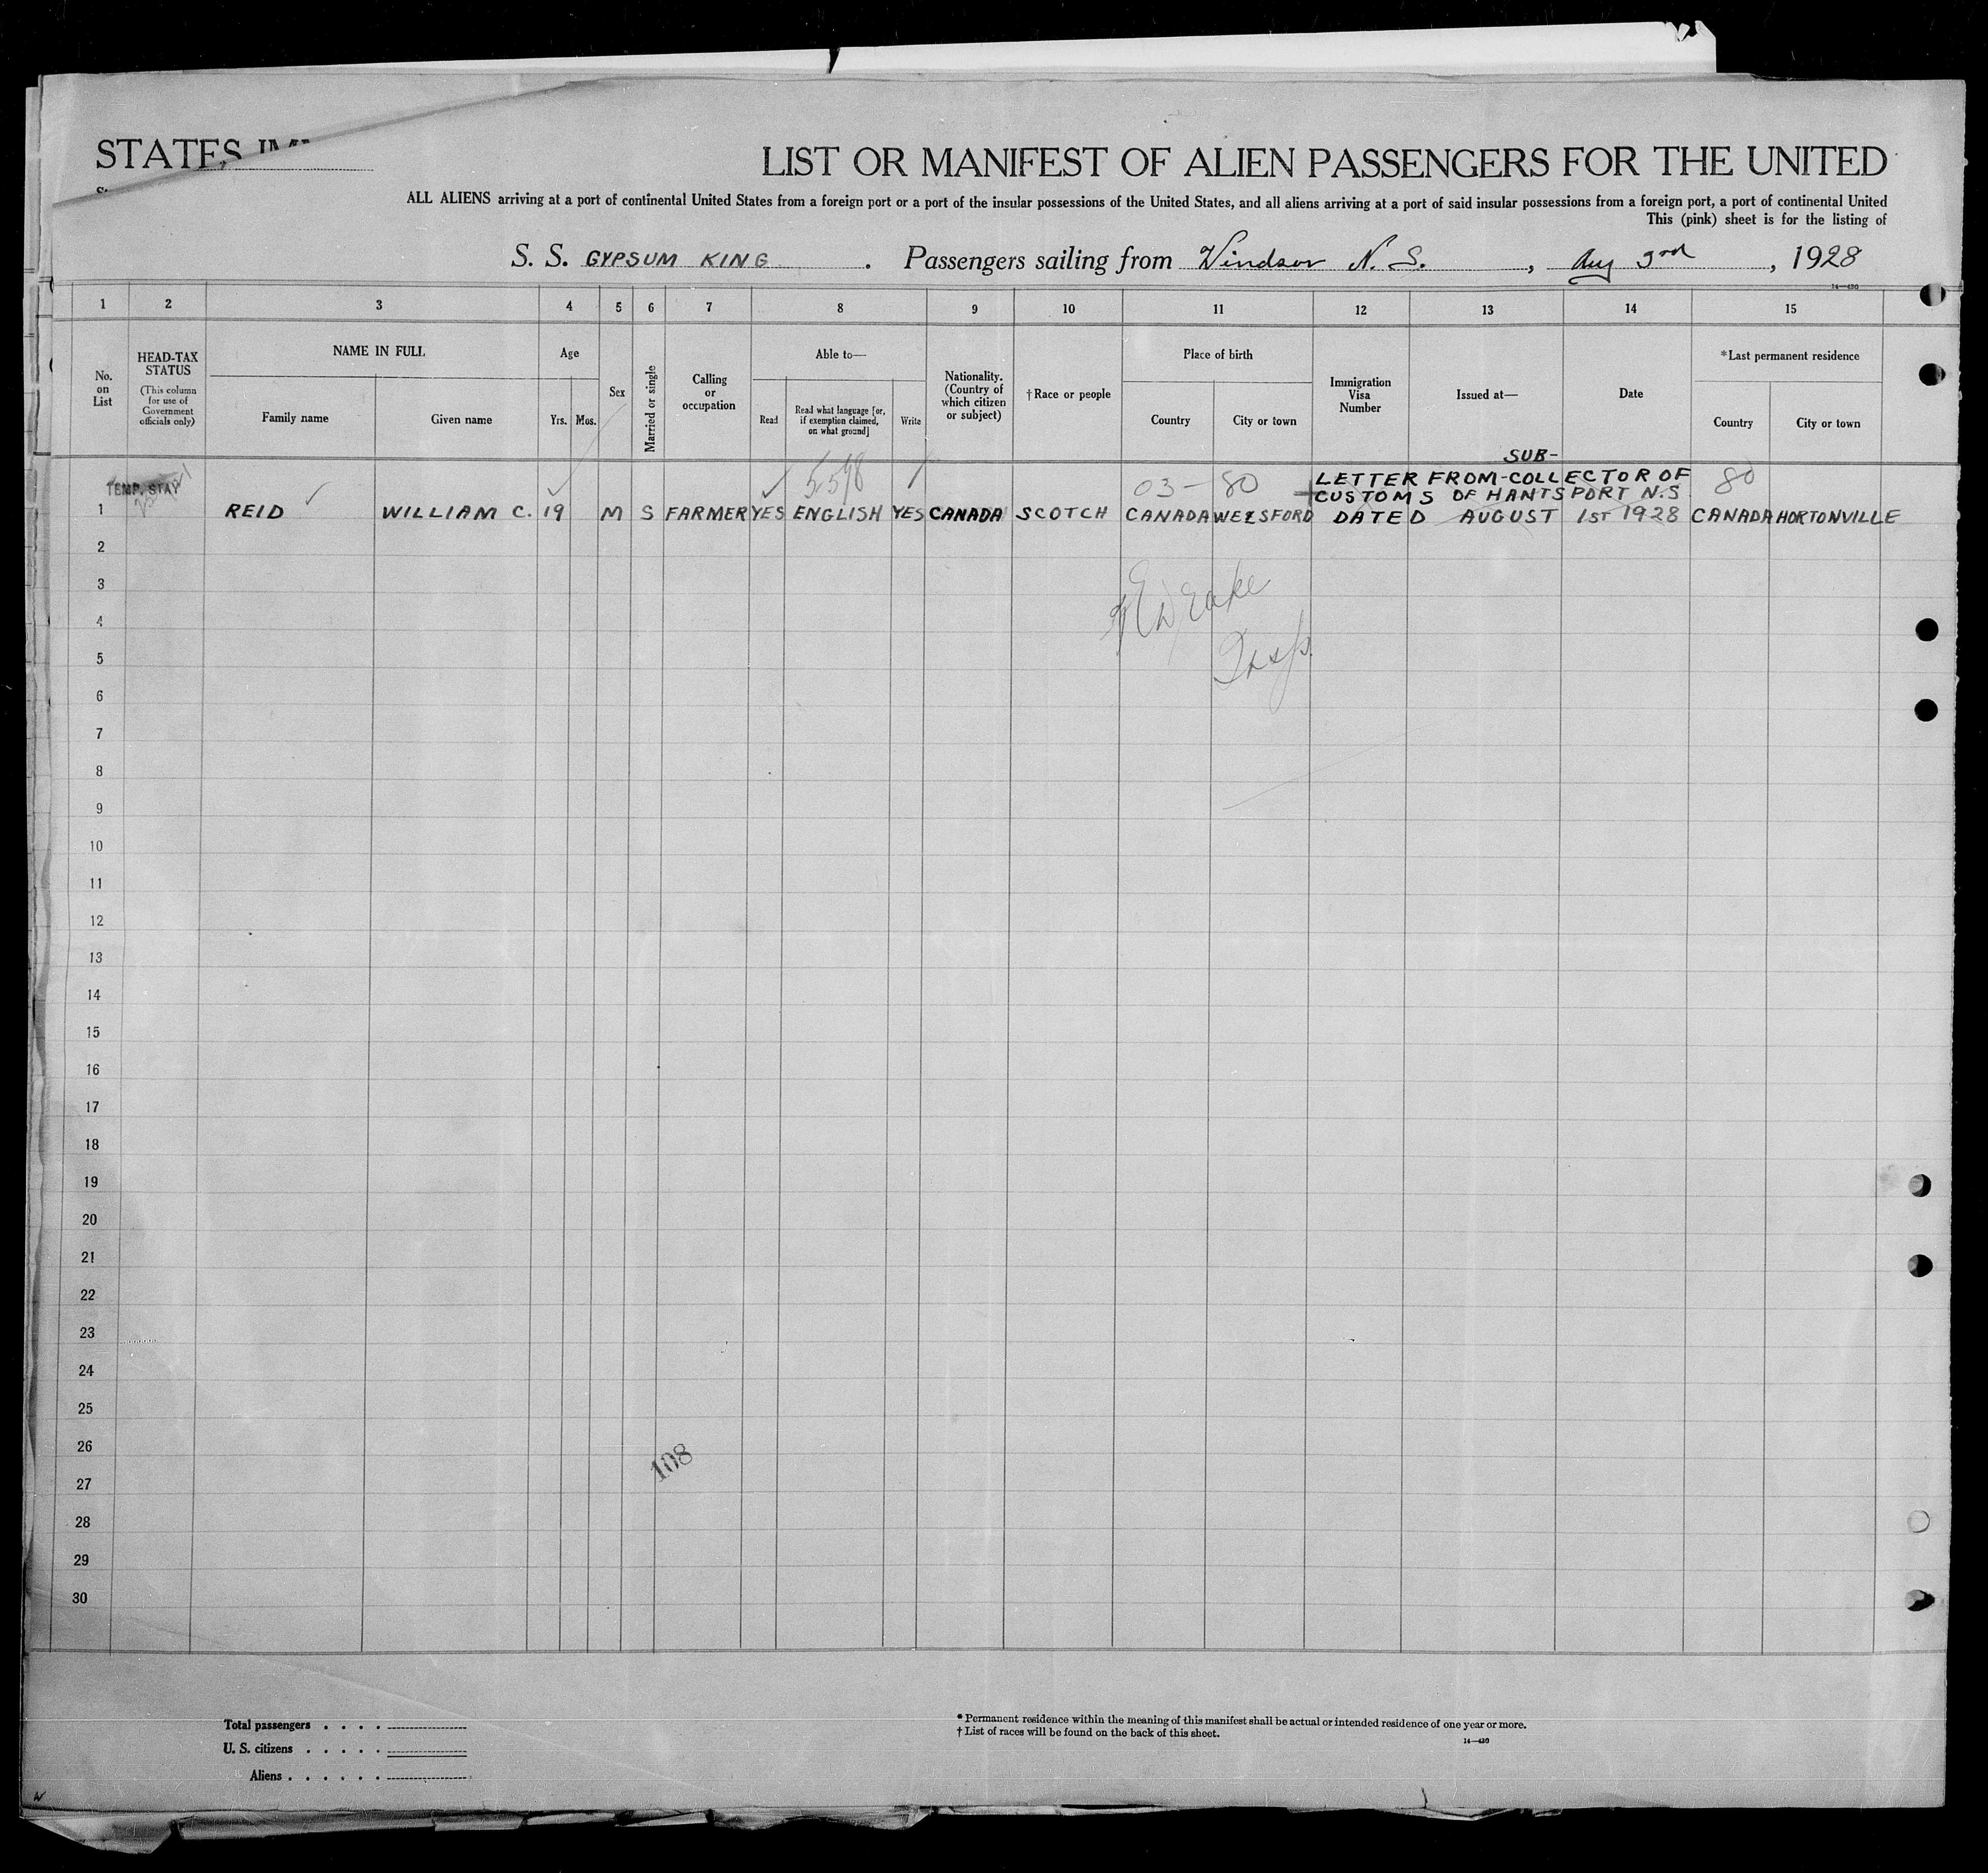 STATES
LIST OR MANIFEST OF ALIEN PASSENGERS FOR THE UNITED
ALL ALIENS arriving at a port of continental United States from a foreign port or a port of the insular possessions of the United States, and all aliens arriving at a port of said insular possessions from a foreign port, a port of continental United
This (pink) sheet is for the listing of
S. S. GYPSUM KING . Passengers sailing from Windsor N. S. , Aug 3rd , 1928
14—430
1 2 3 4 5 6 7 8 9 10 11 12 13 14 15
No. on List
HEAD-TAX STATUS
(This column for use of Government officials only)
NAME IN FULL
Family name
Given name
Age
Yrs.
Mos.
Sex
Married or single
Calling or occupation
Able to—
Read
Read what language [or, if exemption claimed, on what ground]
Write
Nationality. (Country of which citizen or subject)
†Race or people
Place of birth
Country
City or town
Immigration Visa Number
Issued at—
Date
*Last permanent residence
Country
City or town
SUB-
TEMP. STAY 5-598 03 — 80 LETTER FROM-COLLECTOR OF 80
CUSTOMS OF HANTSPORT N.S.
1 REID WILLIAM C. 19 M S FARMER YES ENGLISH YES CANADA SCOTCH CANADA WELSFORD DATED AUGUST 1ST 1928 CANADA HORTONVILLE
2
3
4
5
Insp.
6
7
8
9
10
11
12
13
14
15
16
17
18
19
20
21
22
23
24
25
26
108
27
28
29
30
Total passengers . . . .
U. S. citizens . . . . .
Aliens . . . . . .
* Permanent residence within the meaning of this manifest shall be actual or intended residence of one year or more.
† List of races will be found on the back of this sheet.
14—430